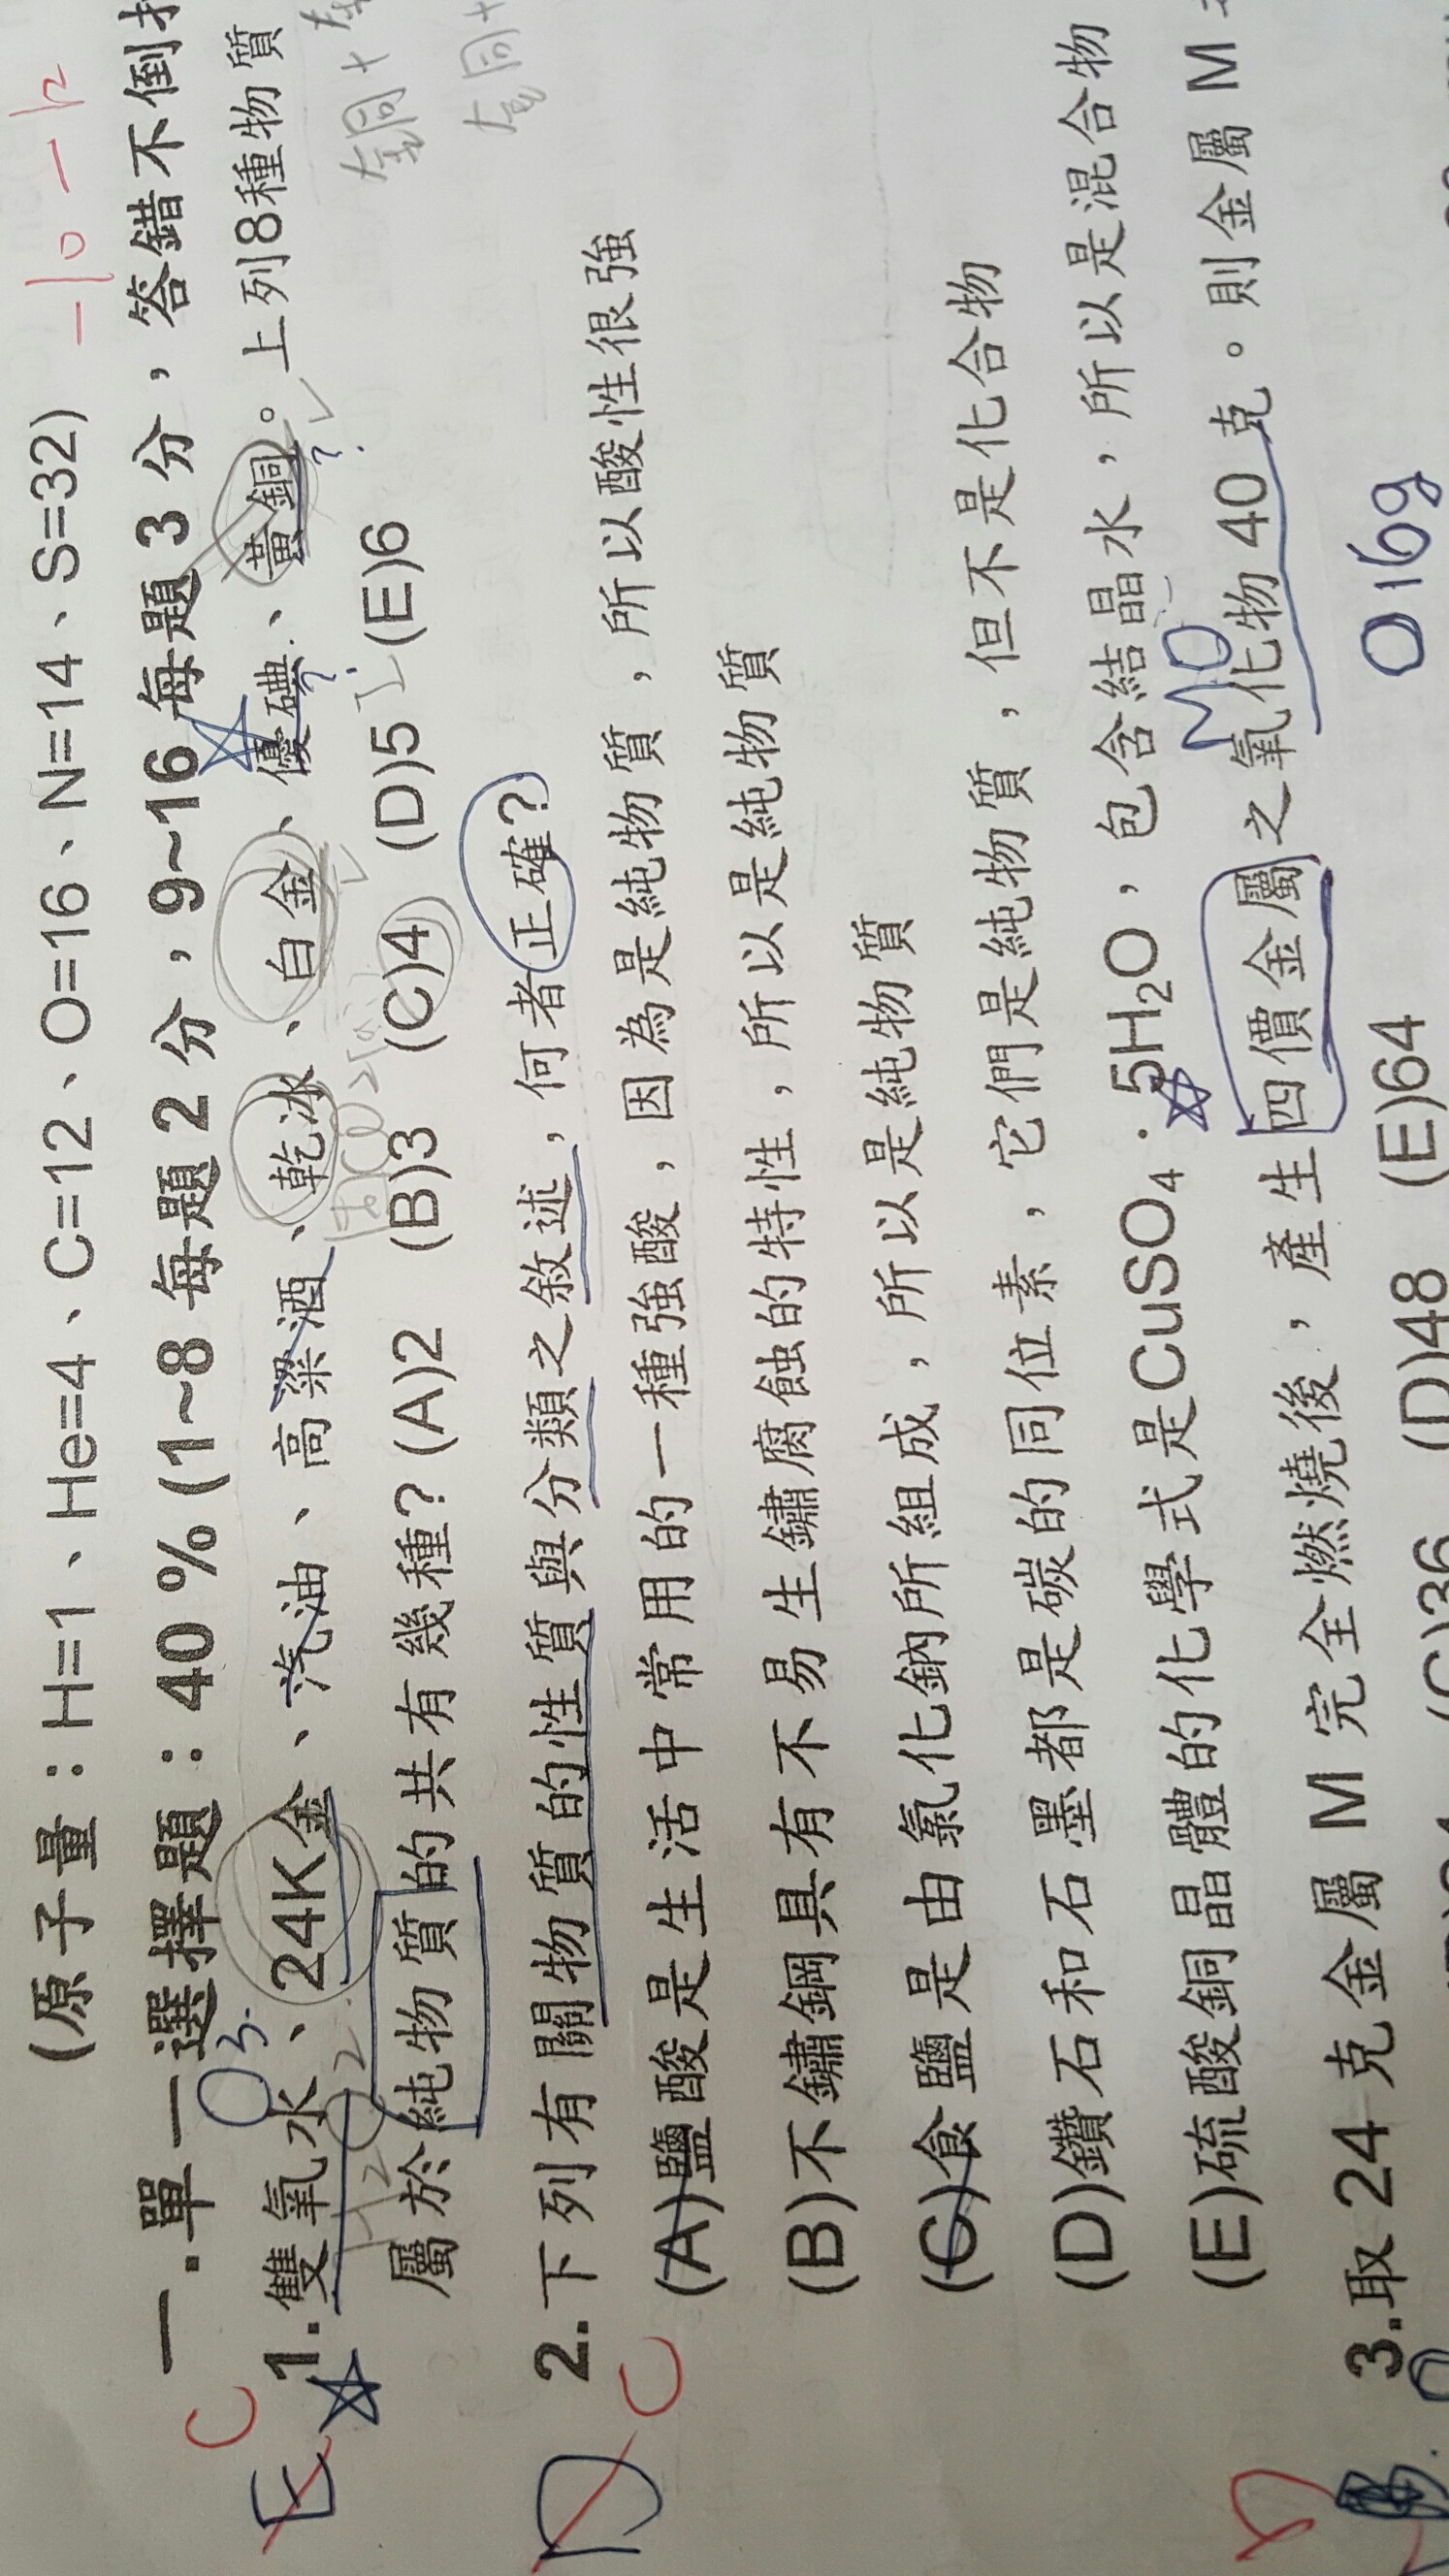 (原子量：H=1、He=4、C=12、O=16、N=14、S=32) -10 -12
一.單一選擇題：40 % (1~8 每題 2 分，9~16 每題 3 分，答錯不倒扣
C E
1.雙氧水、24K金、汽油、高粱酒、乾冰、白金、優碘、黃銅。上列8種物質
屬於純物質的共有幾種? (A)2 (B)3 (C)4 (D)5 (E)6
O3
固CO2
? ?
銅+
D C
2.下列有關物質的性質與分類之敘述，何者正確?
(A)鹽酸是生活中常用的一種強酸，因為是純物質，所以酸性很強
(B)不鏽鋼具有不易生鏽腐蝕的特性，所以是純物質
(C)食鹽是由氯化鈉所組成，所以是純物質
(D)鑽石和石墨都是碳的同位素，它們是純物質，但不是化合物
(E)硫酸銅晶體的化學式是CuSO4．5H2O，包含結晶水，所以是混合物
MO
D
3.取 24 克金屬 M 完全燃燒後，產生四價金屬之氧化物 40 克。則金屬 M
(C)36 (D)48 (E)64
O 16g